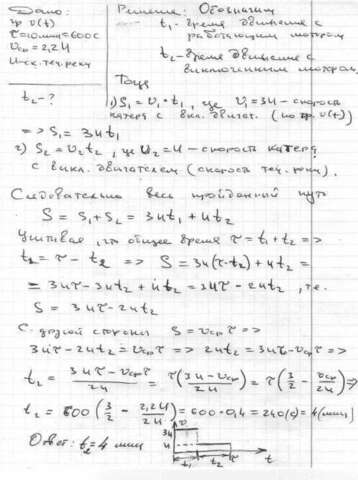 Дано:
гр v(t)
τ=10мин=600с
Vср = 2,2u
u-ск. теч. реки
t₂-?
Решение: Обозначим
t₁ - время движения с
работающим мотором
t₂ - время движения с
выключенным мотором
Тогда
1) S₁ = v₁·t₁, где v₁=3u - скорость
катера с вкл. двигат. (по гр. v(t))
=> S₁ = 3ut₁
2) S₂ = v₂t₂, где v₂=u - скорость катера
с выкл. двигателем (скорость теч. реки).
Следовательно весь пройденный путь
S = S₁+S₂ = 3ut₁+ut₂
Учитывая, что общее время τ = t₁+t₂ =>
t₂ = τ - t₂ => S = 3u(τ-t₂)+ut₂ =
= 3uτ-3ut₂+ut₂ = 3uτ-2ut₂, т.е.
S = 3uτ-2ut₂
С другой стороны S = vсрτ =>
3uτ-2ut₂ = vсрτ => 2ut₂ = 3uτ-vсрτ =>
t₂ = (3uτ-vсрτ)/2u = τ(3u-vср/2u) = τ(3/2 - vср/2u) =>
t₂ = 600(3/2 - 2,2u/2u) = 600·0,4 = 240(с) = 4(мин)
Ответ: t₂=4 мин
v
3u
u
t₁ t₂ τ t